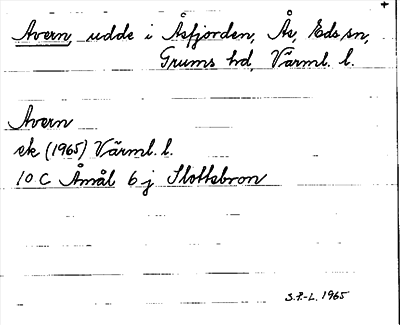 Avern, udde i Åsfjorden, Ås, Eds sn,
Grums hd, Värml. l.
Avern
ek (1965) Värml. l.
10 C Åmål 6 j Slottsbron
S.F.-L. 1965